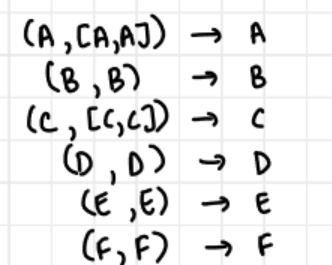 (A, [A,A]) → A
(B, B) → B
(C, [C,C]) → C
(D, D) → D
(E, E) → E
(F, F) → F